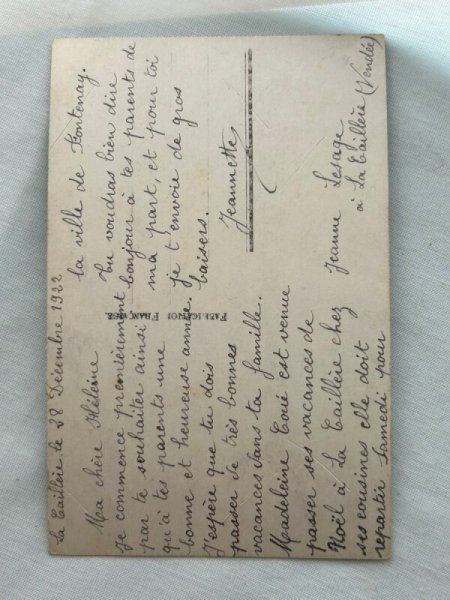 La Caillère le 28 Décembre 1922
Ma chère Hélène
Je commence premièrement
par te souhaiter ainsi
qu'à tes parents une
bonne et heureuse année.
J'espère que tu dois
passer de très bonnes
vacances dans ta famille.
Madeleine Coué est venue
passer ses vacances de
Noël à La Caillère chez
ses cousines elle doit
repartir Samedi pour
la ville de Fontenay.
Tu voudras bien dire
bonjour à tes parents de
ma part, et pour toi
je t envoie de gros
baisers.
Jeannette
Jeanne Lesage
à La Caillère (Vendée)
FABRICATION FRANÇAISE